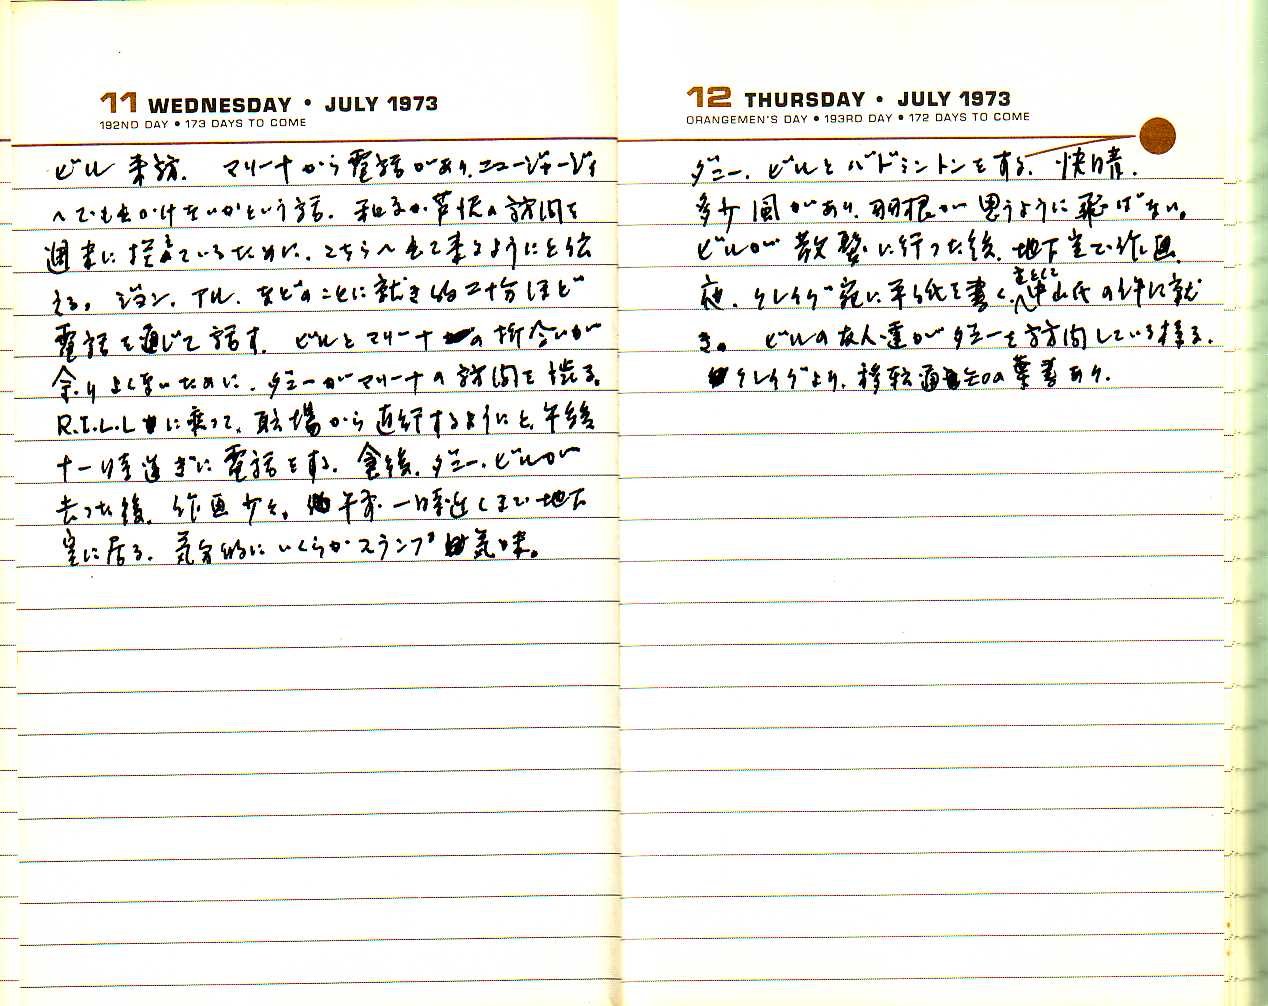 11 WEDNESDAY • JULY 1973
192ND DAY • 173 DAYS TO COME
ビル来訪。マリーナから電話があり、ニュージャージィ
へでも出かけないかという話。 の訪問を
週末に控えているために、こちらへ出て来るようにと伝
える。ジョン、アル、などのことに就き約二十分ほど
電話を通じて話す。ビルとマリーナの折合いが
余りよくないために、ダニーがマリーナの訪問を渋る。
に乗って、職場から直行するようにと、午後
十一時過ぎに電話をする。食後、ダニー、ビルが
去った後、作画少々。午前一時近くまで地下
室に居る。気分的にいくらかスランプ気味。
12 THURSDAY • JULY 1973
ORANGEMEN'S DAY • 193RD DAY • 172 DAYS TO COME
ダニー、ビルとバドミントンをする。快晴。
多少風があり、羽根が思うように飛ばない。
ビルが散歩に行った後、地下室で作画。
夜、クレイグ宛に手紙を書く、中山氏の件に就
き。ビルの友人達がダニーを訪問している様子。
クレイグより、移転通知の葉書あり。